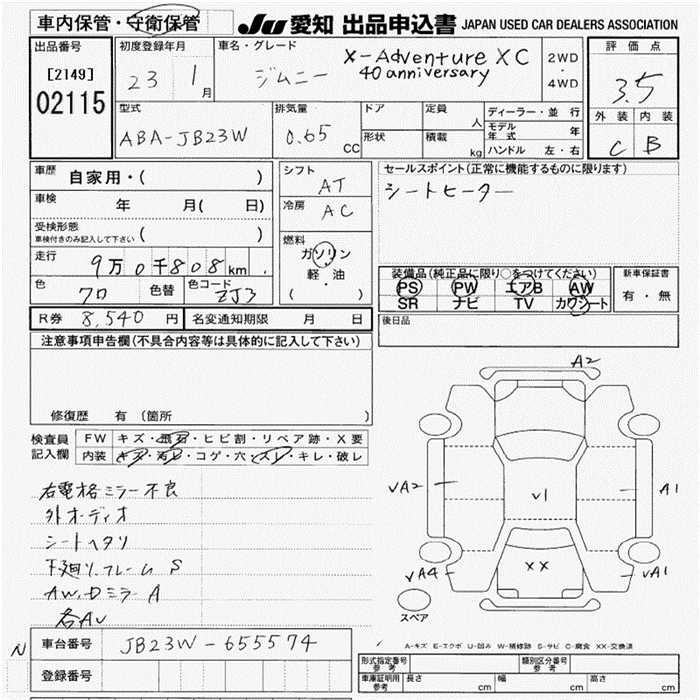 車内保管・守衛保管
JU 愛知 出品申込書 JAPAN USED CAR DEALERS ASSOCIATION
出品番号
[2149]
02115
初度登録年月
23 1月
車名・グレード
ジムニー
X-Adventure XC
40 anniversary
2WD
・
4WD
評価点
3.5
外装 内装
C B
型式
ABA-JB23W
排気量
0.65 cc
ドア
形状
定員 人
積載 kg
ディーラー・並行
モデル年式 年
ハンドル 左・右
車歴
自家用・( )
車検 年 月( 日)
受検形態
車検付きのみ記入して下さい ( )
走行
9万0千808km
色
クロ
色替
色コード
ZJ3
シフト
AT
冷房
AC
燃料
ガソリン
軽・油
( ・ )
セールスポイント(正常に機能するものに限ります)
シートヒーター
装備品(純正品に限り○をつけてください)
PS PW エアB AW
SR ナビ TV カワシート
新車保証書
有・無
R券 8,540 円 名変通知期限 月 日
後日品
注意事項申告欄(不具合内容等は具体的に記入して下さい)
修復歴 有(箇所 )
検査員記入欄
FW キズ・飛石・ヒビ割・リペア跡・X要
内装 キズ・汚レ・コゲ・穴・スレ・キレ・破レ
右電格ミラー不良
外オーディオ
シートヘタリ
下廻り、フレーム S
AW、Dミラー A
各AU
A2
√A2
√1
A1
XX
√A4
√A1
スペア
N
車台番号 JB23W-655574
登録番号
A-キズ E-エクボ U-凹み W-補修跡 S-サビ C-腐食 XX-交換済
形式指定番号 参考
類別区分番号 参考
車庫証明用 参考 長さ cm 幅 cm 高さ cm